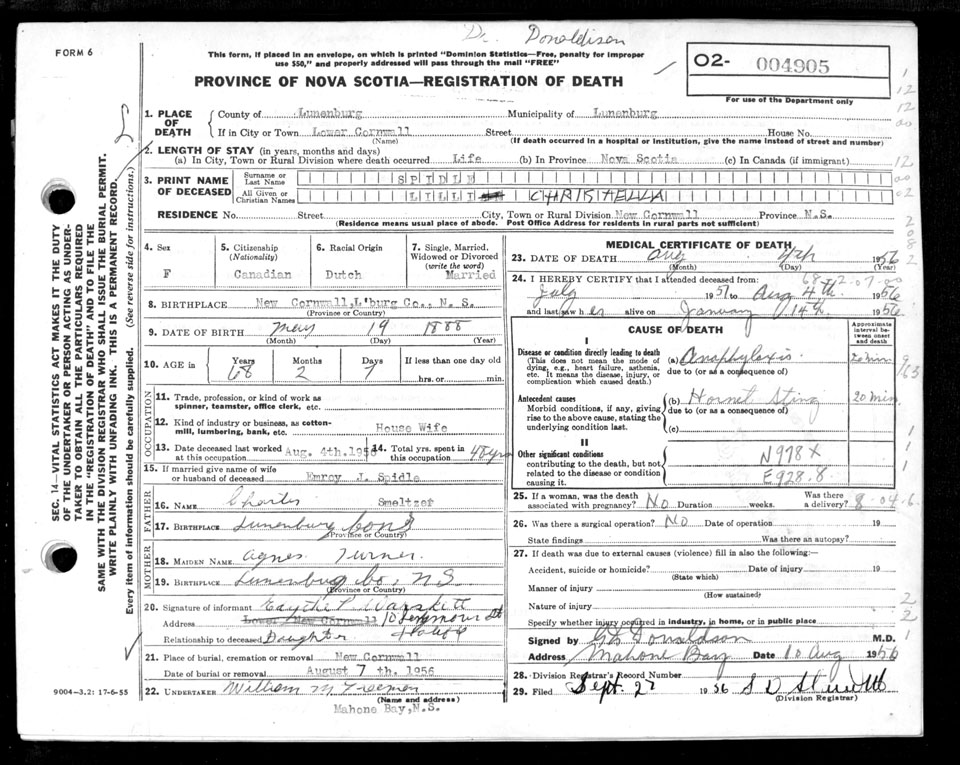 Dr. Donaldson
FORM 6
This form, if placed in an envelope, on which is printed "Dominion Statistics—Free, penalty for improper
use $50," and properly addressed will pass through the mail "FREE"
PROVINCE OF NOVA SCOTIA—REGISTRATION OF DEATH
O2- 004905
For use of the Department only
SEC. 14—VITAL STATISTICS ACT MAKES IT THE DUTY
OF THE UNDERTAKER OR PERSON ACTING AS UNDER-
TAKER TO OBTAIN ALL THE PARTICULARS REQUIRED
IN THE "REGISTRATION OF DEATH" AND TO FILE THE
SAME WITH THE DIVISION REGISTRAR WHO SHALL ISSUE THE BURIAL PERMIT.
WRITE PLAINLY WITH UNFADING INK. THIS IS A PERMANENT RECORD.
Every item of information should be carefully supplied. (See reverse side for instructions.)
1. PLACE OF DEATH
County of Lunenburg Municipality of Lunenburg
If in City or Town Lower Cornwall Street House No.
(Name) (If death occurred in a hospital or institution, give the name instead of street and number)
2. LENGTH OF STAY (in years, months and days)
(a) In City, Town or Rural Division where death occurred Life (b) In Province Nova Scotia (c) In Canada (if immigrant)
3. PRINT NAME OF DECEASED
Surname or Last Name SPIDLE
All Given or Christian Names CHRISTELLA
RESIDENCE No. Street City, Town or Rural Division New Cornwall Province N.S.
(Residence means usual place of abode. Post Office Address for residents in rural parts not sufficient)
4. Sex F
5. Citizenship (Nationality) Canadian
6. Racial Origin Dutch
7. Single, Married, Widowed or Divorced (write the word) Married
8. BIRTHPLACE New Cornwall, L'burg Co., N. S.
(Province or Country)
9. DATE OF BIRTH May 19 1888
(Month) (Day) (Year)
10. AGE in Years 68 Months 2 Days 7 If less than one day old hrs. or min.
OCCUPATION
11. Trade, profession, or kind of work as
spinner, teamster, office clerk, etc.
12. Kind of industry or business, as cotton-
mill, lumbering, bank, etc. House Wife
13. Date deceased last worked at this occupation Aug. 4th. 1956
14. Total yrs. spent in this occupation 48 yrs
15. If married give name of wife
or husband of deceased Emroy J. Spidle
FATHER
16. NAME Charles Smeltzer
17. BIRTHPLACE Lunenburg Co NS
(Province or Country)
MOTHER
18. MAIDEN NAME Agnes Turner.
19. BIRTHPLACE Lunenburg Co, NS
(Province or Country)
20. Signature of informant
Address Lower New Cornwall 10 Seymour St
Relationship to deceased Daughter Halifx
21. Place of burial, cremation or removal New Cornwall
Date of burial or removal August 7 th. 1956
22. UNDERTAKER William M Freeman
(Name and address)
Mahone Bay, N.S.
9004-3.2: 17-6-55
MEDICAL CERTIFICATE OF DEATH
23. DATE OF DEATH Aug 4th 1956
(Month) (Day) (Year)
24. I HEREBY CERTIFY that I attended deceased from:
July 1951 to Aug 4th. 1956
and last saw her alive on January 14th 1956
CAUSE OF DEATH
Approximate interval between onset and death
I
Disease or condition directly leading to death (a) Anaphylaxis. 20 min
(This does not mean the mode of dying, e.g., heart failure, asthenia, etc. It means the disease, injury, or complication which caused death.)
due to (or as a consequence of)
Antecedent causes (b) Hornet Sting 20 min.
Morbid conditions, if any, giving rise to the above cause, stating the underlying condition last.
due to (or as a consequence of)
(c)
II
Other significant conditions
contributing to the death, but not related to the disease or condition causing it.
N978X
E928.8
25. If a woman, was the death associated with pregnancy? No Duration weeks. Was there a delivery?
26. Was there a surgical operation? No Date of operation 19
State findings Was there an autopsy?
27. If death was due to external causes (violence) fill in also the following:—
Accident, suicide or homicide? Date of injury 19
(State which)
Manner of injury
(How sustained)
Nature of injury
Specify whether injury occurred in industry, in home, or in public place
Signed by Donaldson M.D.
Address Mahone Bay Date 10 Aug 1956
28. Division Registrar's Record Number
29. Filed Sept. 27 1956
(Division Registrar)